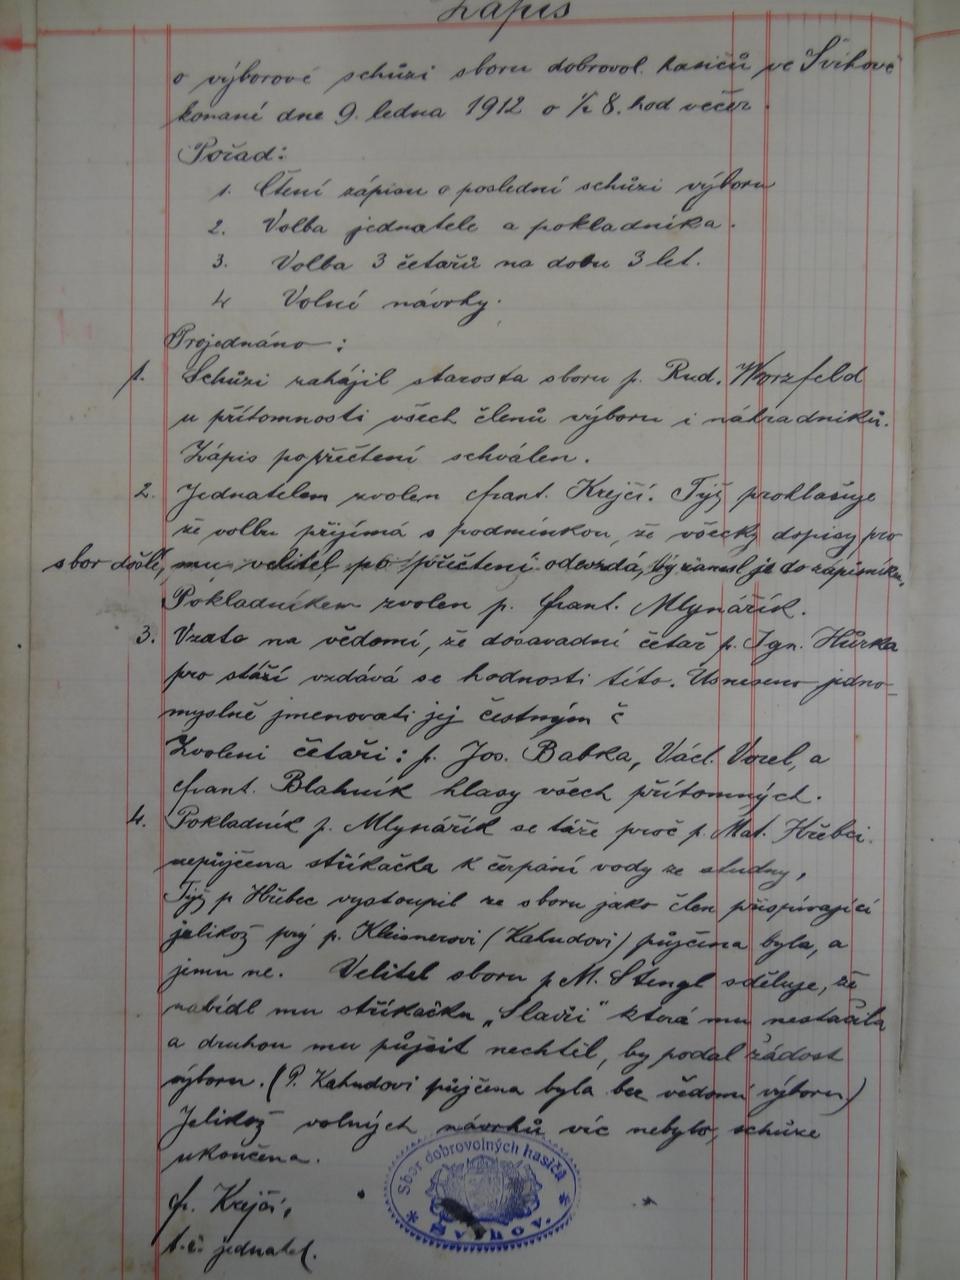 Zápis
o výborové schůzi sboru dobrovol. hasičů ve Švihově
konané dne 9. ledna 1912 o ½ 8. hod večer.
Pořad:
1. Čtení zápisu o poslední schůzi výboru
2. Volba jednatele a pokladníka.
3. Volba 3 četařů na dobu 3 let.
4 Volné návrhy.
Projednáno:
1. Schůzi zahájil starosta sboru p. Rud. Worzfeld
u přítomnosti všech členů výboru i náhradníků.
Zápis po přečtení schválen.
2. Jednatelem zvolen Frant. Krejčí. Týž prohlašuje
že volbu přijímá s podmínkou, že všecky dopisy pro
sbor došlé, mu velitel po přečtení odevzdá, by zanesl je do zápisníku.
Pokladníkem zvolen p. Frant. Mlynářík.
3. Vzato na vědomí, že dosavadní četař p. Ign. Hůrka
pro stáří vzdává se hodnosti této. Usneseno jedno-
myslně jmenovati jej čestným č
Zvoleni četaři: p. Jos. Babka, Václ. Vozel, a
Frant. Blahník hlasy všech přítomných.
4. Pokladník p. Mlynářík se táže proč p. Mat. Hřebci
nepůjčena stříkačka k čerpání vody ze studny,
Týž p Hřebec vystoupil ze sboru jako člen přispívající
jelikož prý p. Kleisnerovi (Kahudovi) půjčena byla, a
jemu ne. Velitel sboru p M. Štengl sděluje, že
nabídl mu stříkačku „Slavii" která mu nestačila
a druhou mu půjčit nechtěl, by podal žádost
výboru. (P. Kahudovi půjčena byla bez vědomí výboru)
Jelikož volných návrhů víc nebylo, schůze
ukončena.
Fr. Krejčí,
t. č. jednatel.
Sbor dobrovolných hasičů
* Švihov. *